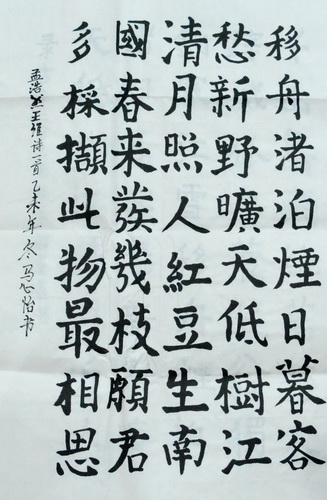 移舟渚泊煙日暮客
愁新野曠天低樹江
清月照人紅豆生南
國春来發幾枝願君
多採擷此物最相思
孟浩然王维诗一首乙未年冬马心怡书